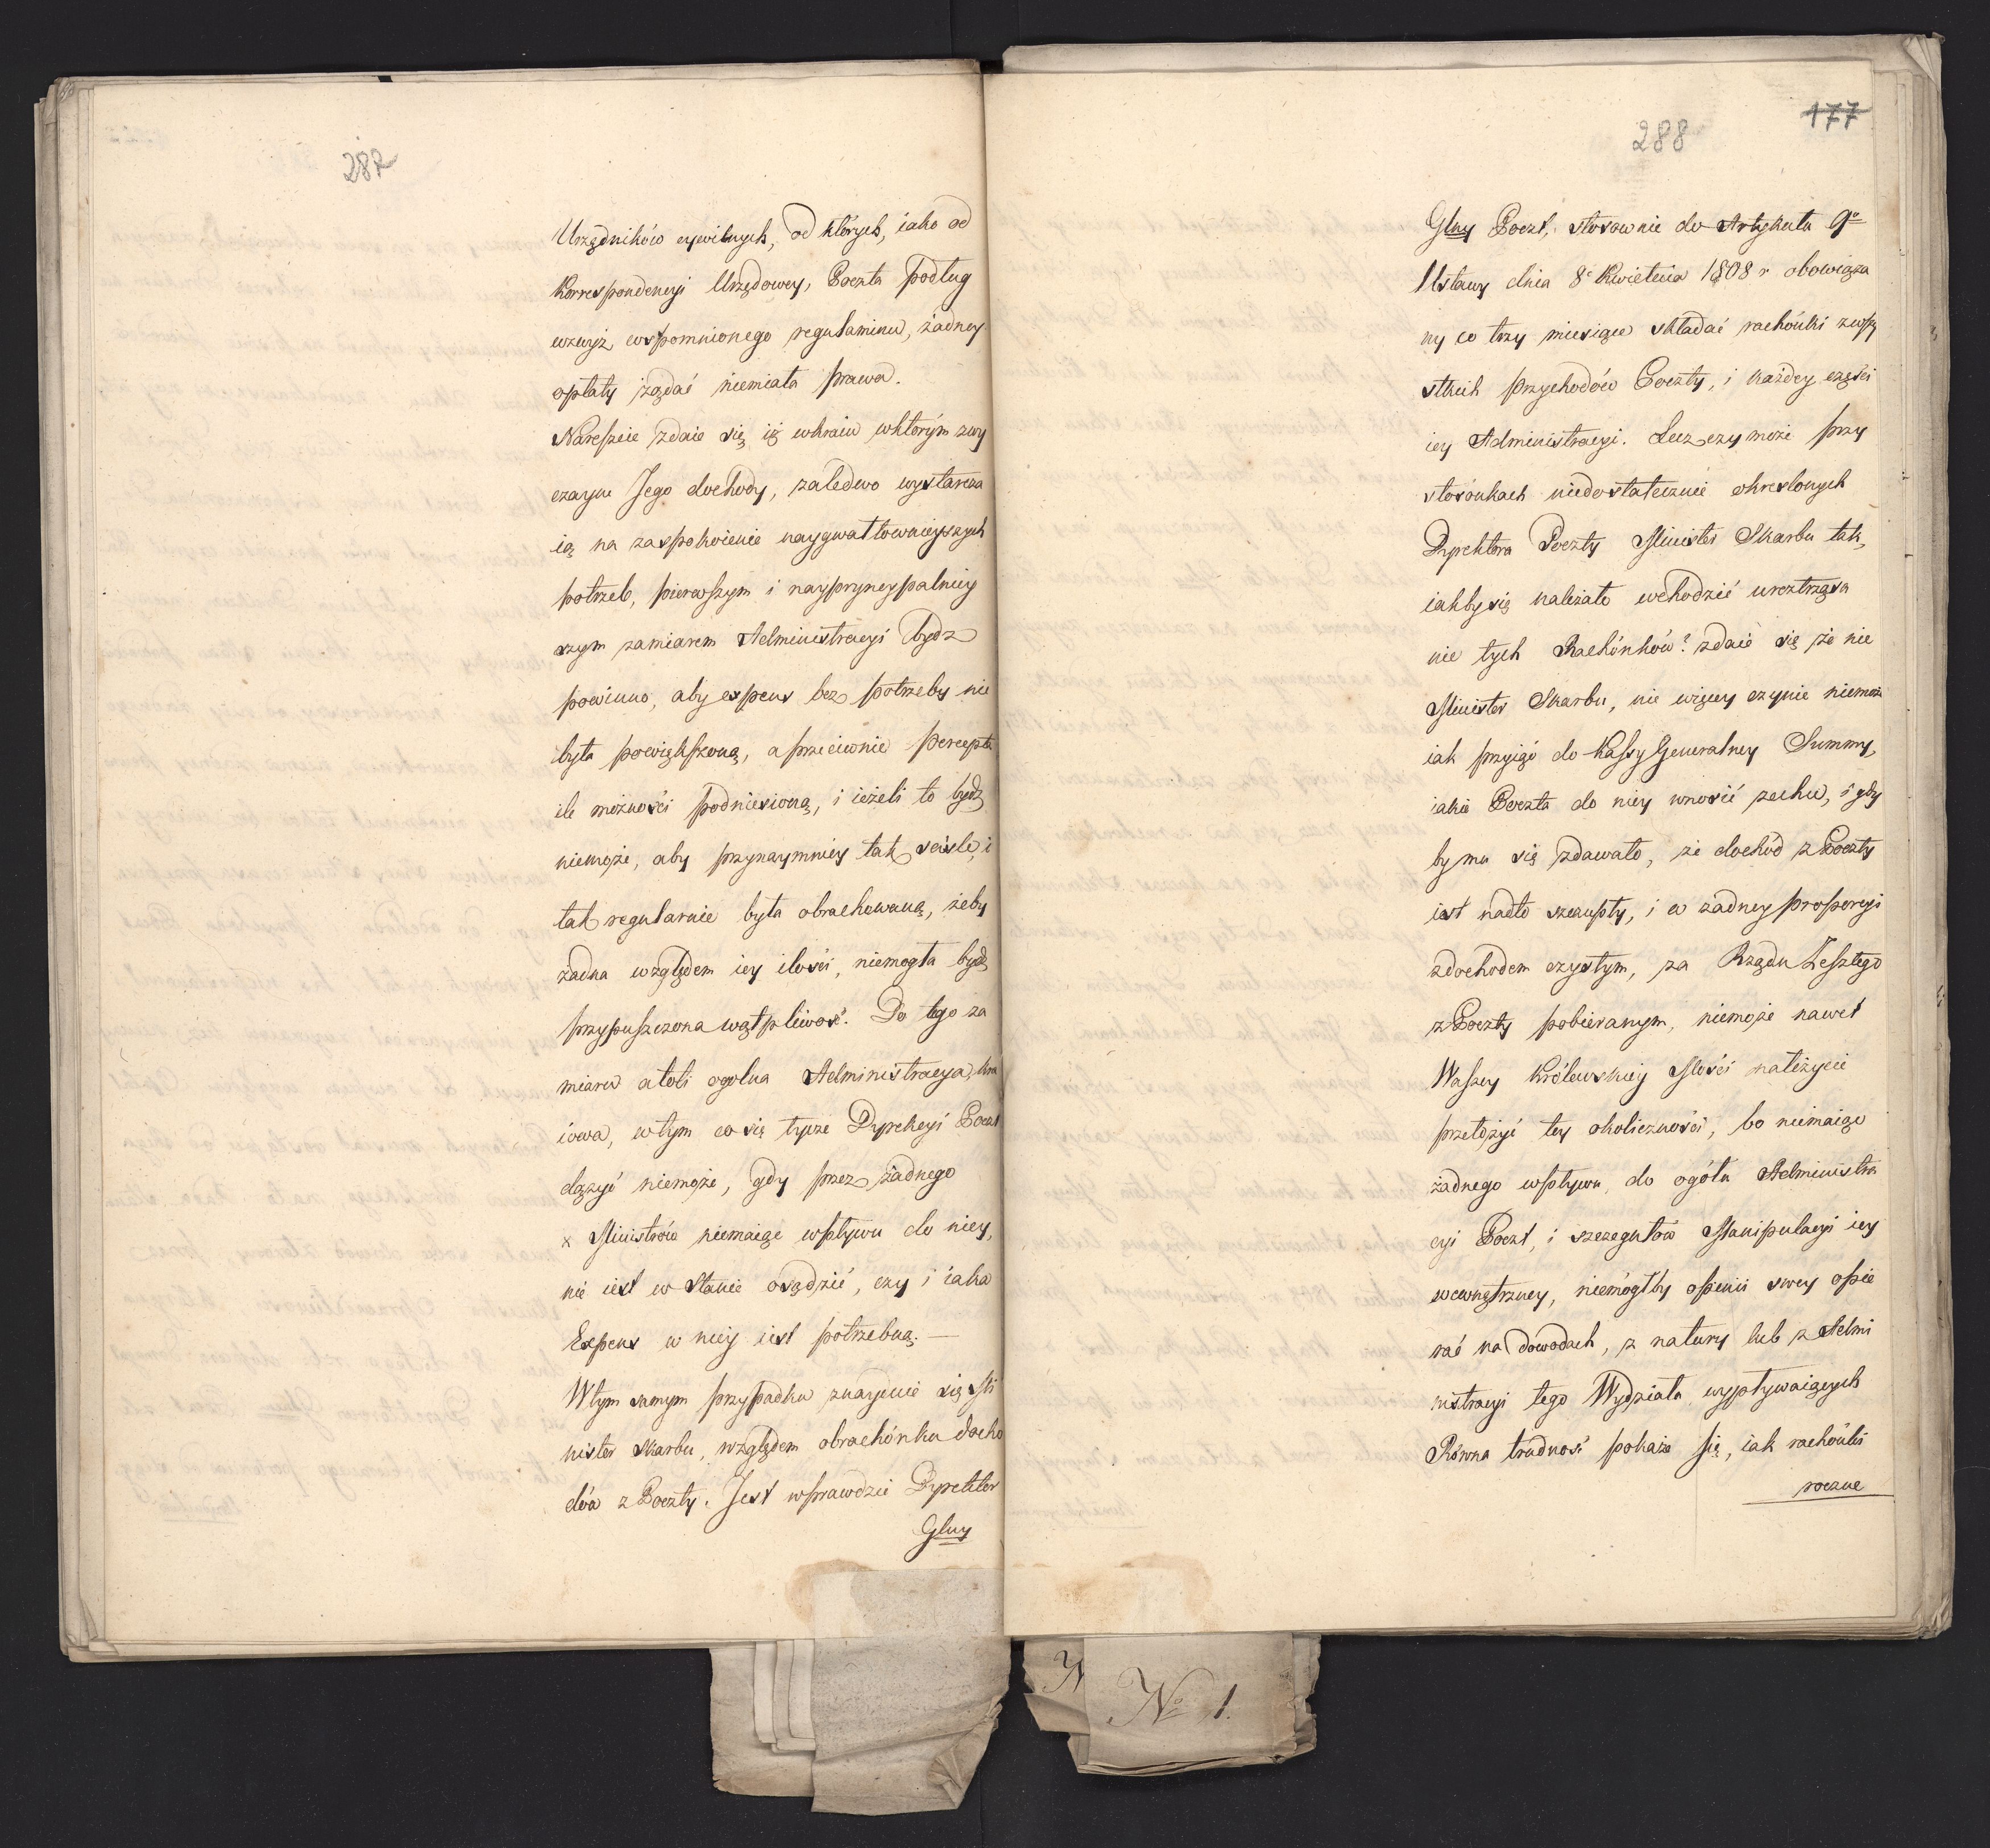 287
Urzędników cywilnych, od których, iako od
Korrespondencyi Urzędowey, Poczta podług
wzwyż wspomnionego regulaminu, żadney
opłaty żądać niemiała prawa.
Nareszcie zdaie się iż wkraiu wktórym zwy
czayne Jego dochody, zaledwo wystarcza
ią na zaspokoienie naygwałtownieyszych
potrzeb, pierwszym i naypryncypalniey
szym zamiarem Administracyi bydz
powinno, aby expens bez potrzeby nie
była powiększoną, a przeciwnie percepta
ile możności podniesioną, i ieżeli to bydź
niemoże, aby przynaymniey tak sciśle, i
tak regularnie była obrachowaną, żeby
żadna względem iey ilości, niemogła bydź
przypuszczona wątpliwość. Do tego za
miaru atoli ogolna Administracya, kra
iowa, wtym co się tycze Dyrekcyi Poczt
dążyć niemoże, gdy przez żadnego
x Ministrów niemaiąc wpływu do niey,
nie iest w stanie osądzić, czy i iaka
Expens w niey iest potrzebną. —
Wtym samym przypadku znayduie się Mi
nister Skarbu, względem obrachónku docho
dów z Poczty. Jest wprawdzie Dyrektor
Glny
177
288
Glny Poczt, stosownie do Artykułu 9o
Ustawy dnia 8o Kwietnia 1808 r obowiąza
ny co trzy miesiące składać rachónki zwszy
stkich przychodów Poczty, i każdey części
iey Administracyi. Lecz czy może przy
stosónkach niedostatecznie okreslonych
Dyrektora Poczty Minister Skarbu tak,
iakby się należało wchodzić wroztrząsa
nie tych Rachónków? zdaie się że nie
Minister Skarbu, nic więcey czynic niemoże
iak przyiąć do Kassy Generalney Summy,
iakie Poczta do niey wnosić zechce, i gdy
by mu się zdawało, że dochód z Poczty
iest nadto szczupły, i w żadney proporcyi
zdochodem czystym, za Rządu Zeszłego
z Poczty pobieranym, niemoże nawet
Waszey Królewskiey Mości należycie
przełożyć tey okoliczności, bo niemaiąc
żadnego wpływu do ogółu Administra
cyi Poczt, i szczegułów Manipulacyi iey
wewnętrzney, niemógłby opinii swey opie
rać na dowodach, z natury lub z Admi
nistracyi tego Wydziału wypływaiących
Równa trudność pokaże się, iak rachónki
roczne
N
No 1.